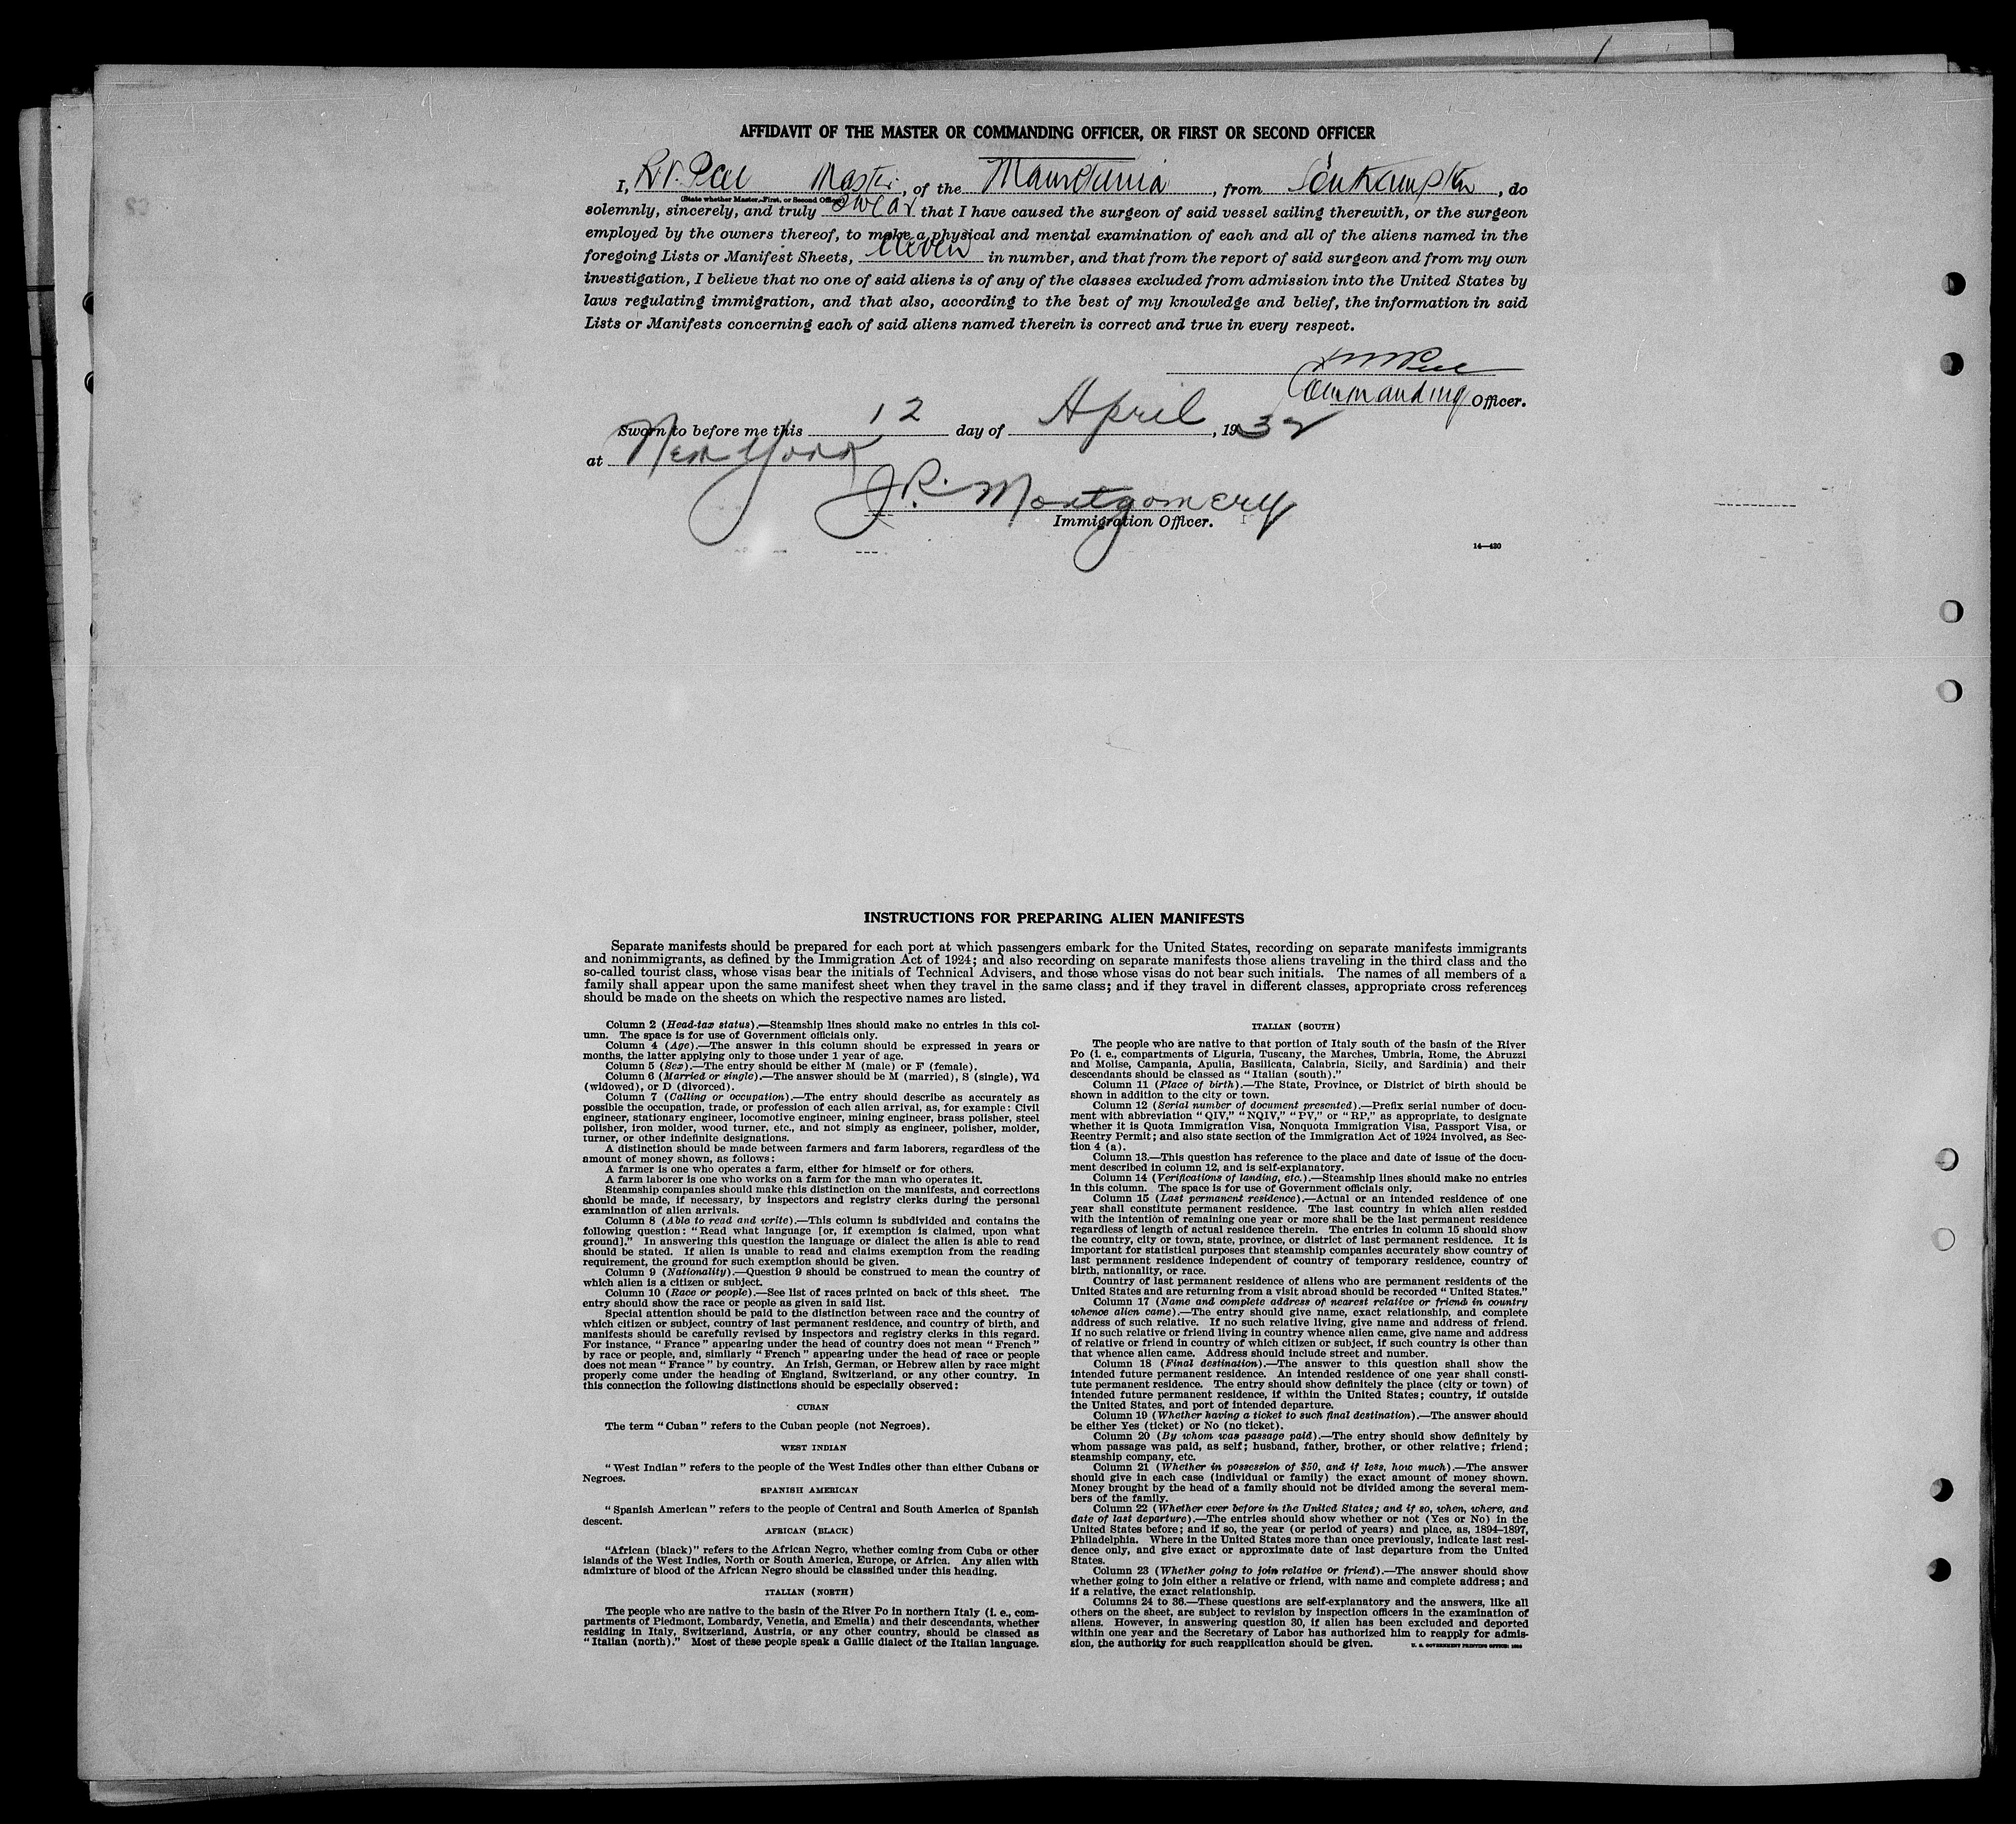 AFFIDAVIT OF THE MASTER OR COMMANDING OFFICER, OR FIRST OR SECOND OFFICER
I, Master, of the Mauretania, from Southampton, do
(State whether Master, First, or Second Officer)
solemnly, sincerely, and truly swear that I have caused the surgeon of said vessel sailing therewith, or the surgeon
employed by the owners thereof, to make a physical and mental examination of each and all of the aliens named in the
foregoing Lists or Manifest Sheets, eleven in number, and that from the report of said surgeon and from my own
investigation, I believe that no one of said aliens is of any of the classes excluded from admission into the United States by
laws regulating immigration, and that also, according to the best of my knowledge and belief, the information in said
Lists or Manifests concerning each of said aliens named therein is correct and true in every respect.
Commanding Officer.
Sworn to before me this 12 day of April, 1932
at New York
J.R. Montgomery
Immigration Officer.
14—420
INSTRUCTIONS FOR PREPARING ALIEN MANIFESTS
Separate manifests should be prepared for each port at which passengers embark for the United States, recording on separate manifests immigrants
and nonimmigrants, as defined by the Immigration Act of 1924; and also recording on separate manifests those aliens traveling in the third class and the
so-called tourist class, whose visas bear the initials of Technical Advisers, and those whose visas do not bear such initials. The names of all members of a
family shall appear upon the same manifest sheet when they travel in the same class; and if they travel in different classes, appropriate cross references
should be made on the sheets on which the respective names are listed.
Column 2 (Head-tax status).—Steamship lines should make no entries in this col-
umn. The space is for use of Government officials only.
Column 4 (Age).—The answer in this column should be expressed in years or
months, the latter applying only to those under 1 year of age.
Column 5 (Sex).—The entry should be either M (male) or F (female).
Column 6 (Married or single).—The answer should be M (married), S (single), Wd
(widowed), or D (divorced).
Column 7 (Calling or occupation).—The entry should describe as accurately as
possible the occupation, trade, or profession of each alien arrival, as, for example: Civil
engineer, stationary engineer, locomotive engineer, mining engineer, brass polisher, steel
polisher, iron molder, wood turner, etc., and not simply as engineer, polisher, molder,
turner, or other indefinite designations.
A distinction should be made between farmers and farm laborers, regardless of the
amount of money shown, as follows:
A farmer is one who operates a farm, either for himself or for others.
A farm laborer is one who works on a farm for the man who operates it.
Steamship companies should make this distinction on the manifests, and corrections
should be made, if necessary, by inspectors and registry clerks during the personal
examination of alien arrivals.
Column 8 (Able to read and write).—This column is subdivided and contains the
following question: "Read what language [or, if exemption is claimed, upon what
ground]." In answering this question the language or dialect the alien is able to read
should be stated. If alien is unable to read and claims exemption from the reading
requirement, the ground for such exemption should be given.
Column 9 (Nationality).—Question 9 should be construed to mean the country of
which alien is a citizen or subject.
Column 10 (Race or people).—See list of races printed on back of this sheet. The
entry should show the race or people as given in said list.
Special attention should be paid to the distinction between race and the country of
which citizen or subject, country of last permanent residence, and country of birth, and
manifests should be carefully revised by inspectors and registry clerks in this regard.
For instance, "France" appearing under the head of country does not mean "French"
by race or people, and, similarly "French" appearing under the head of race or people
does not mean "France" by country. An Irish, German, or Hebrew alien by race might
properly come under the heading of England, Switzerland, or any other country. In
this connection the following distinctions should be especially observed:
CUBAN
The term "Cuban" refers to the Cuban people (not Negroes).
WEST INDIAN
"West Indian" refers to the people of the West Indies other than either Cubans or
Negroes.
SPANISH AMERICAN
"Spanish American" refers to the people of Central and South America of Spanish
descent.
AFRICAN (BLACK)
"African (black)" refers to the African Negro, whether coming from Cuba or other
islands of the West Indies, North or South America, Europe, or Africa. Any alien with
admixture of blood of the African Negro should be classified under this heading.
ITALIAN (NORTH)
The people who are native to the basin of the River Po in northern Italy (i. e., com-
partments of Piedmont, Lombardy, Venetia, and Emelia) and their descendants, whether
residing in Italy, Switzerland, Austria, or any other country, should be classed as
"Italian (north)." Most of these people speak a Gallic dialect of the Italian language.
ITALIAN (SOUTH)
The people who are native to that portion of Italy south of the basin of the River
Po (i. e., compartments of Liguria, Tuscany, the Marches, Umbria, Rome, the Abruzzi
and Molise, Campania, Apulia, Basilicata, Calabria, Sicily, and Sardinia) and their
descendants should be classed as "Italian (south)."
Column 11 (Place of birth).—The State, Province, or District of birth should be
shown in addition to the city or town.
Column 12 (Serial number of document presented).—Prefix serial number of docu-
ment with abbreviation "QIV," "NQIV," "PV," or "RP," as appropriate, to designate
whether it is Quota Immigration Visa, Nonquota Immigration Visa, Passport Visa, or
Reentry Permit; and also state section of the Immigration Act of 1924 involved, as Sec-
tion 4 (a).
Column 13.—This question has reference to the place and date of issue of the docu-
ment described in column 12, and is self-explanatory.
Column 14 (Verifications of landing, etc.).—Steamship lines should make no entries
in this column. The space is for use of Government officials only.
Column 15 (Last permanent residence).—Actual or an intended residence of one
year shall constitute permanent residence. The last country in which alien resided
with the intention of remaining one year or more shall be the last permanent residence
regardless of length of actual residence therein. The entries in column 15 should show
the country, city or town, state, province, or district of last permanent residence. It is
important for statistical purposes that steamship companies accurately show country of
last permanent residence independent of country of temporary residence, country of
birth, nationality, or race.
Country of last permanent residence of aliens who are permanent residents of the
United States and are returning from a visit abroad should be recorded "United States."
Column 17 (Name and complete address of nearest relative or friend in country
whence alien came).—The entry should give name, exact relationship, and complete
address of such relative. If no such relative living, give name and address of friend.
If no such relative or friend living in country whence alien came, give name and address
of relative or friend in country of which citizen or subject, if such country is other than
that whence alien came. Address should include street and number.
Column 18 (Final destination).—The answer to this question shall show the
intended future permanent residence. An intended residence of one year shall consti-
tute permanent residence. The entry should show definitely the place (city or town) of
intended future permanent residence, if within the United States; country, if outside
the United States, and port of intended departure.
Column 19 (Whether having a ticket to such final destination).—The answer should
be either Yes (ticket) or No (no ticket).
Column 20 (By whom was passage paid).—The entry should show definitely by
whom passage was paid, as self; husband, father, brother, or other relative; friend;
steamship company, etc.
Column 21 (Whether in possession of $50, and if less, how much).—The answer
should give in each case (individual or family) the exact amount of money shown.
Money brought by the head of a family should not be divided among the several mem-
bers of the family.
Column 22 (Whether ever before in the United States; and if so, when, where, and
date of last departure).—The entries should show whether or not (Yes or No) in the
United States before; and if so, the year (or period of years) and place, as, 1894–1897,
Philadelphia. Where in the United States more than once previously, indicate last resi-
dence only, and give exact or approximate date of last departure from the United
States.
Column 23 (Whether going to join relative or friend).—The answer should show
whether going to join either a relative or friend, with name and complete address; and
if a relative, the exact relationship.
Columns 24 to 36.—These questions are self-explanatory and the answers, like all
others on the sheet, are subject to revision by inspection officers in the examination of
aliens. However, in answering question 30, if alien has been excluded and deported
within one year and the Secretary of Labor has authorized him to reapply for admis-
sion, the authority for such reapplication should be given. U. S. GOVERNMENT PRINTING OFFICE: